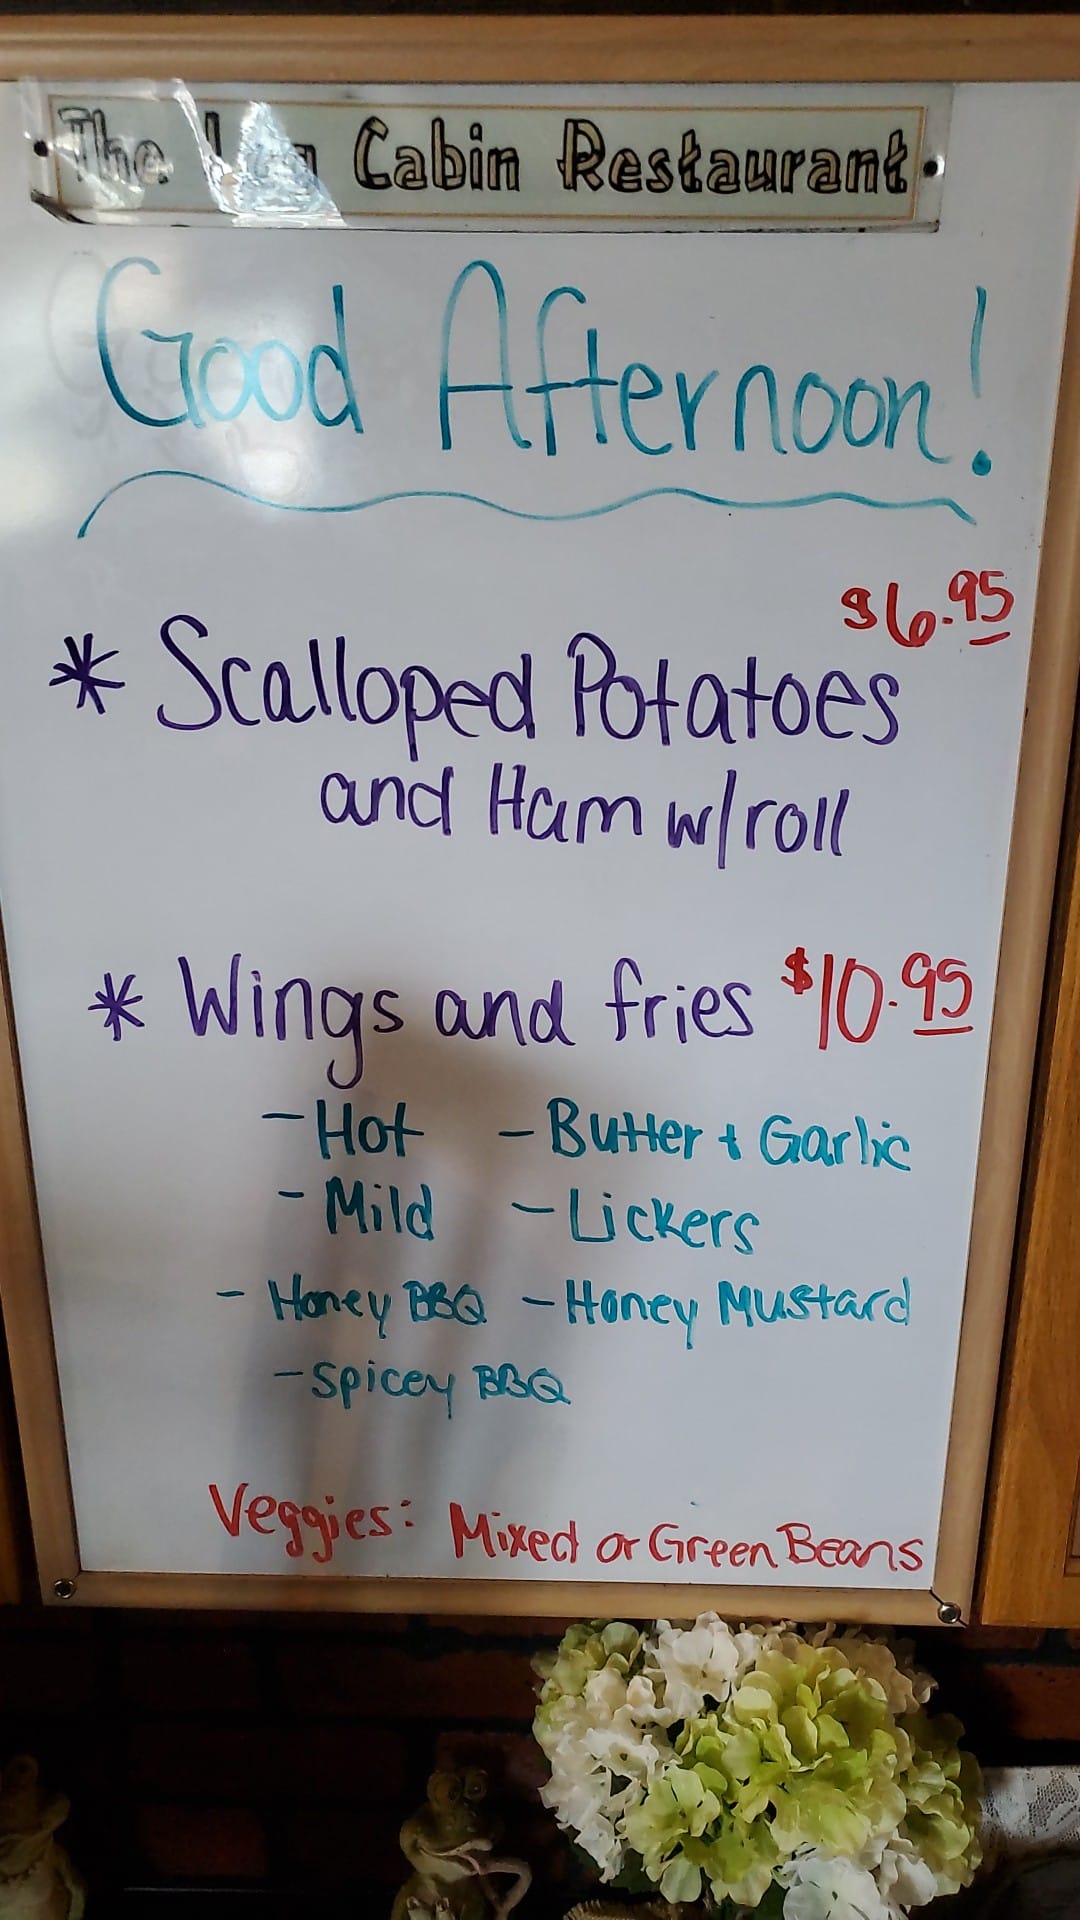 The Log Cabin Restaurant
Good Afternoon!
$6.95
* Scalloped Potatoes
and Ham w/roll
* Wings and fries $10.95
- Hot - Butter + Garlic
- Mild - Lickers
- Honey BBQ - Honey Mustard
- Spicey BBQ
Veggies: Mixed or Green Beans